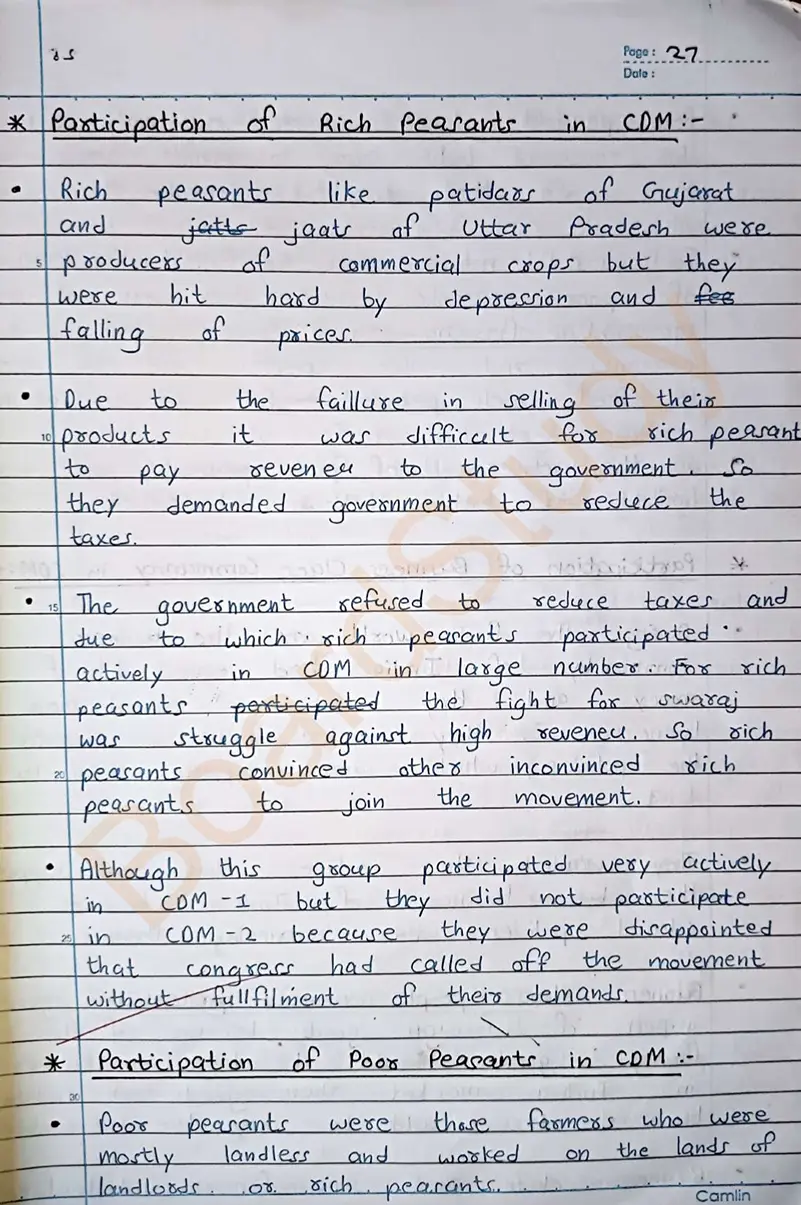 Page: 27
Date:
* Participation of Rich Peasants in CDM:-
• Rich peasants like patidars of Gujarat
and jatts jaats of Uttar Pradesh were
5 producers of commercial crops but they
were hit hard by depression and fee
falling of prices.
• Due to the faillure in selling of their
10 products it was difficult for rich peasant
to pay reveneu to the government. So
they demanded government to reduce the
taxes.
• 15 The government refused to reduce taxes and
due to which rich peasants participated
actively in CDM in large number. For rich
peasants participated the fight for swaraj
was struggle against high reveneu. So rich
20 peasants convinced other inconvinced rich
peasants to join the movement.
• Although this group participated very actively
in CDM-1 but they did not participate
25 in CDM-2 because they were disappointed
that congress had called off the movement
without fullfilment of their demands.
* Participation of Poor Peasants in CDM:-
30
• Poor peasants were those farmers who were
mostly landless and worked on the lands of
landlords or rich peasants.
Camlin
BoardStudy